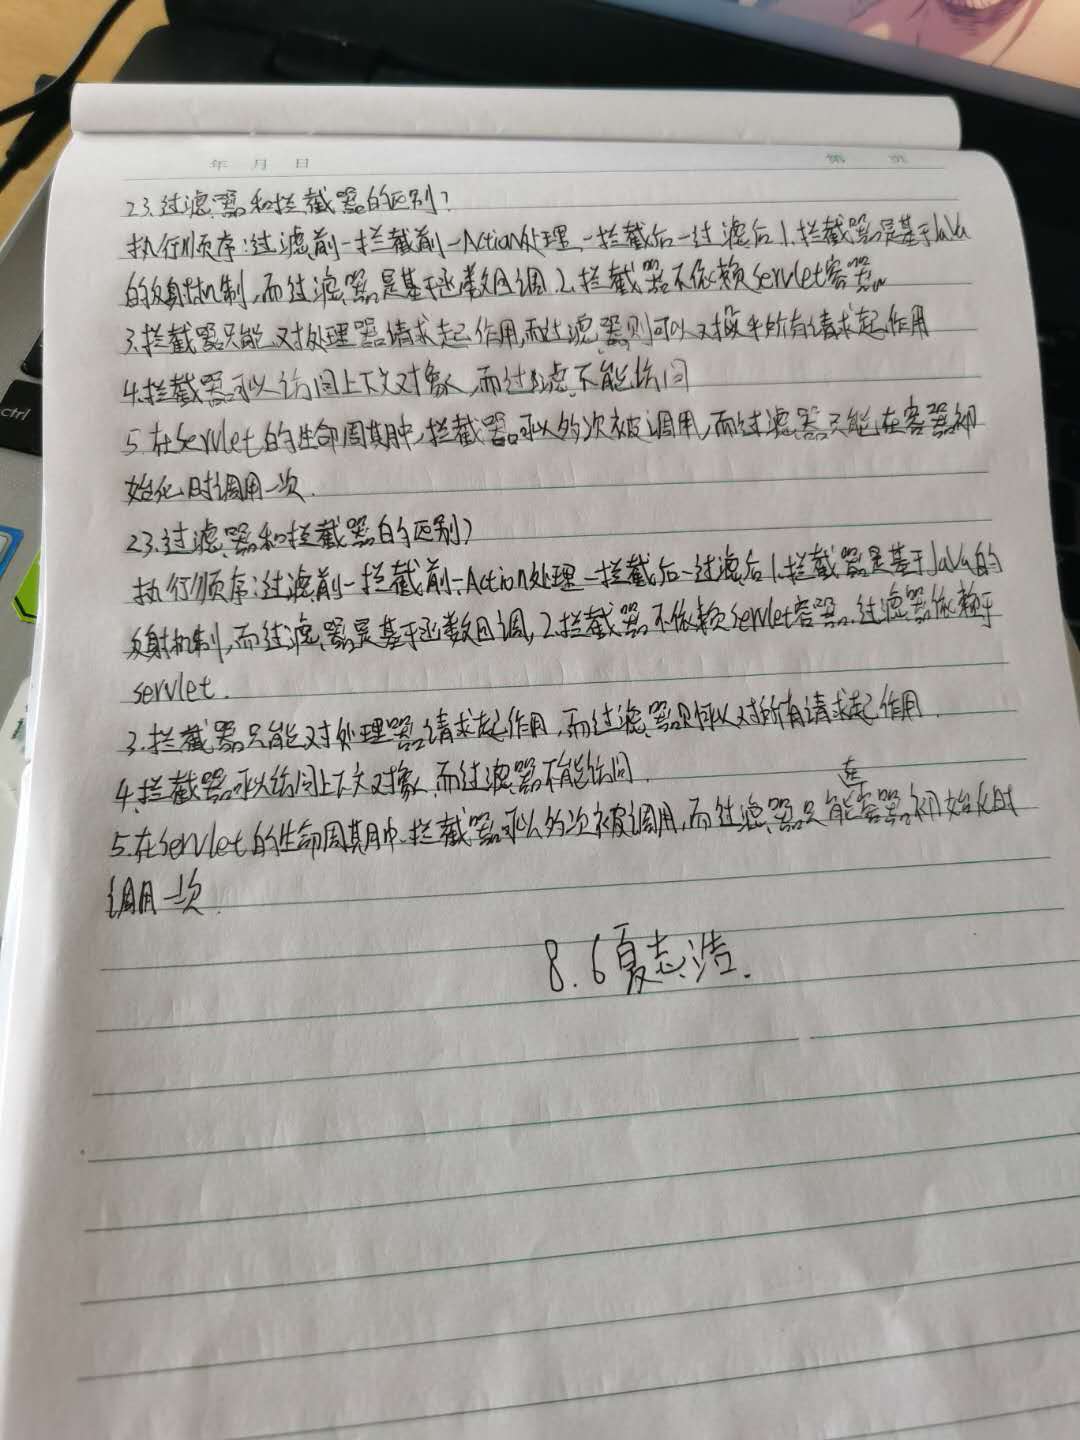 年 月 日 第 页
23.过滤器和拦截器的区别?
执行顺序:过滤前-拦截前-Action处理-拦截后-过滤后1.拦截器是基于Java
的反射机制,而过滤器是基于函数回调.2.拦截器不依赖Servlet容器。
3.拦截器只能对处理器请求起作用,而过滤器则可以对几乎所有请求起作用
4.拦截器可以访问上下文对象,而过滤不能访问
5.在Servlet的生命周期中,拦截器可以多次被调用,而过滤器只能在容器初
始化时调用一次.
23.过滤器和拦截器的区别?
执行顺序:过滤前-拦截前-Action处理-拦截后-过滤后1.拦截器是基于Java的
反射机制,而过滤器是基于函数回调,2.拦截器不依赖Servlet容器.过滤器依赖于
servlet.
3.拦截器只能对处理器请求起作用,而过滤器则可以对所有请求起作用.
4.拦截器可以访问上下文对象,而过滤器不能访问.
5.在Servlet的生命周期中.拦截器可以多次被调用,而过滤器只能在容器初始化时
调用一次.
8.6夏志浩.
ctrl